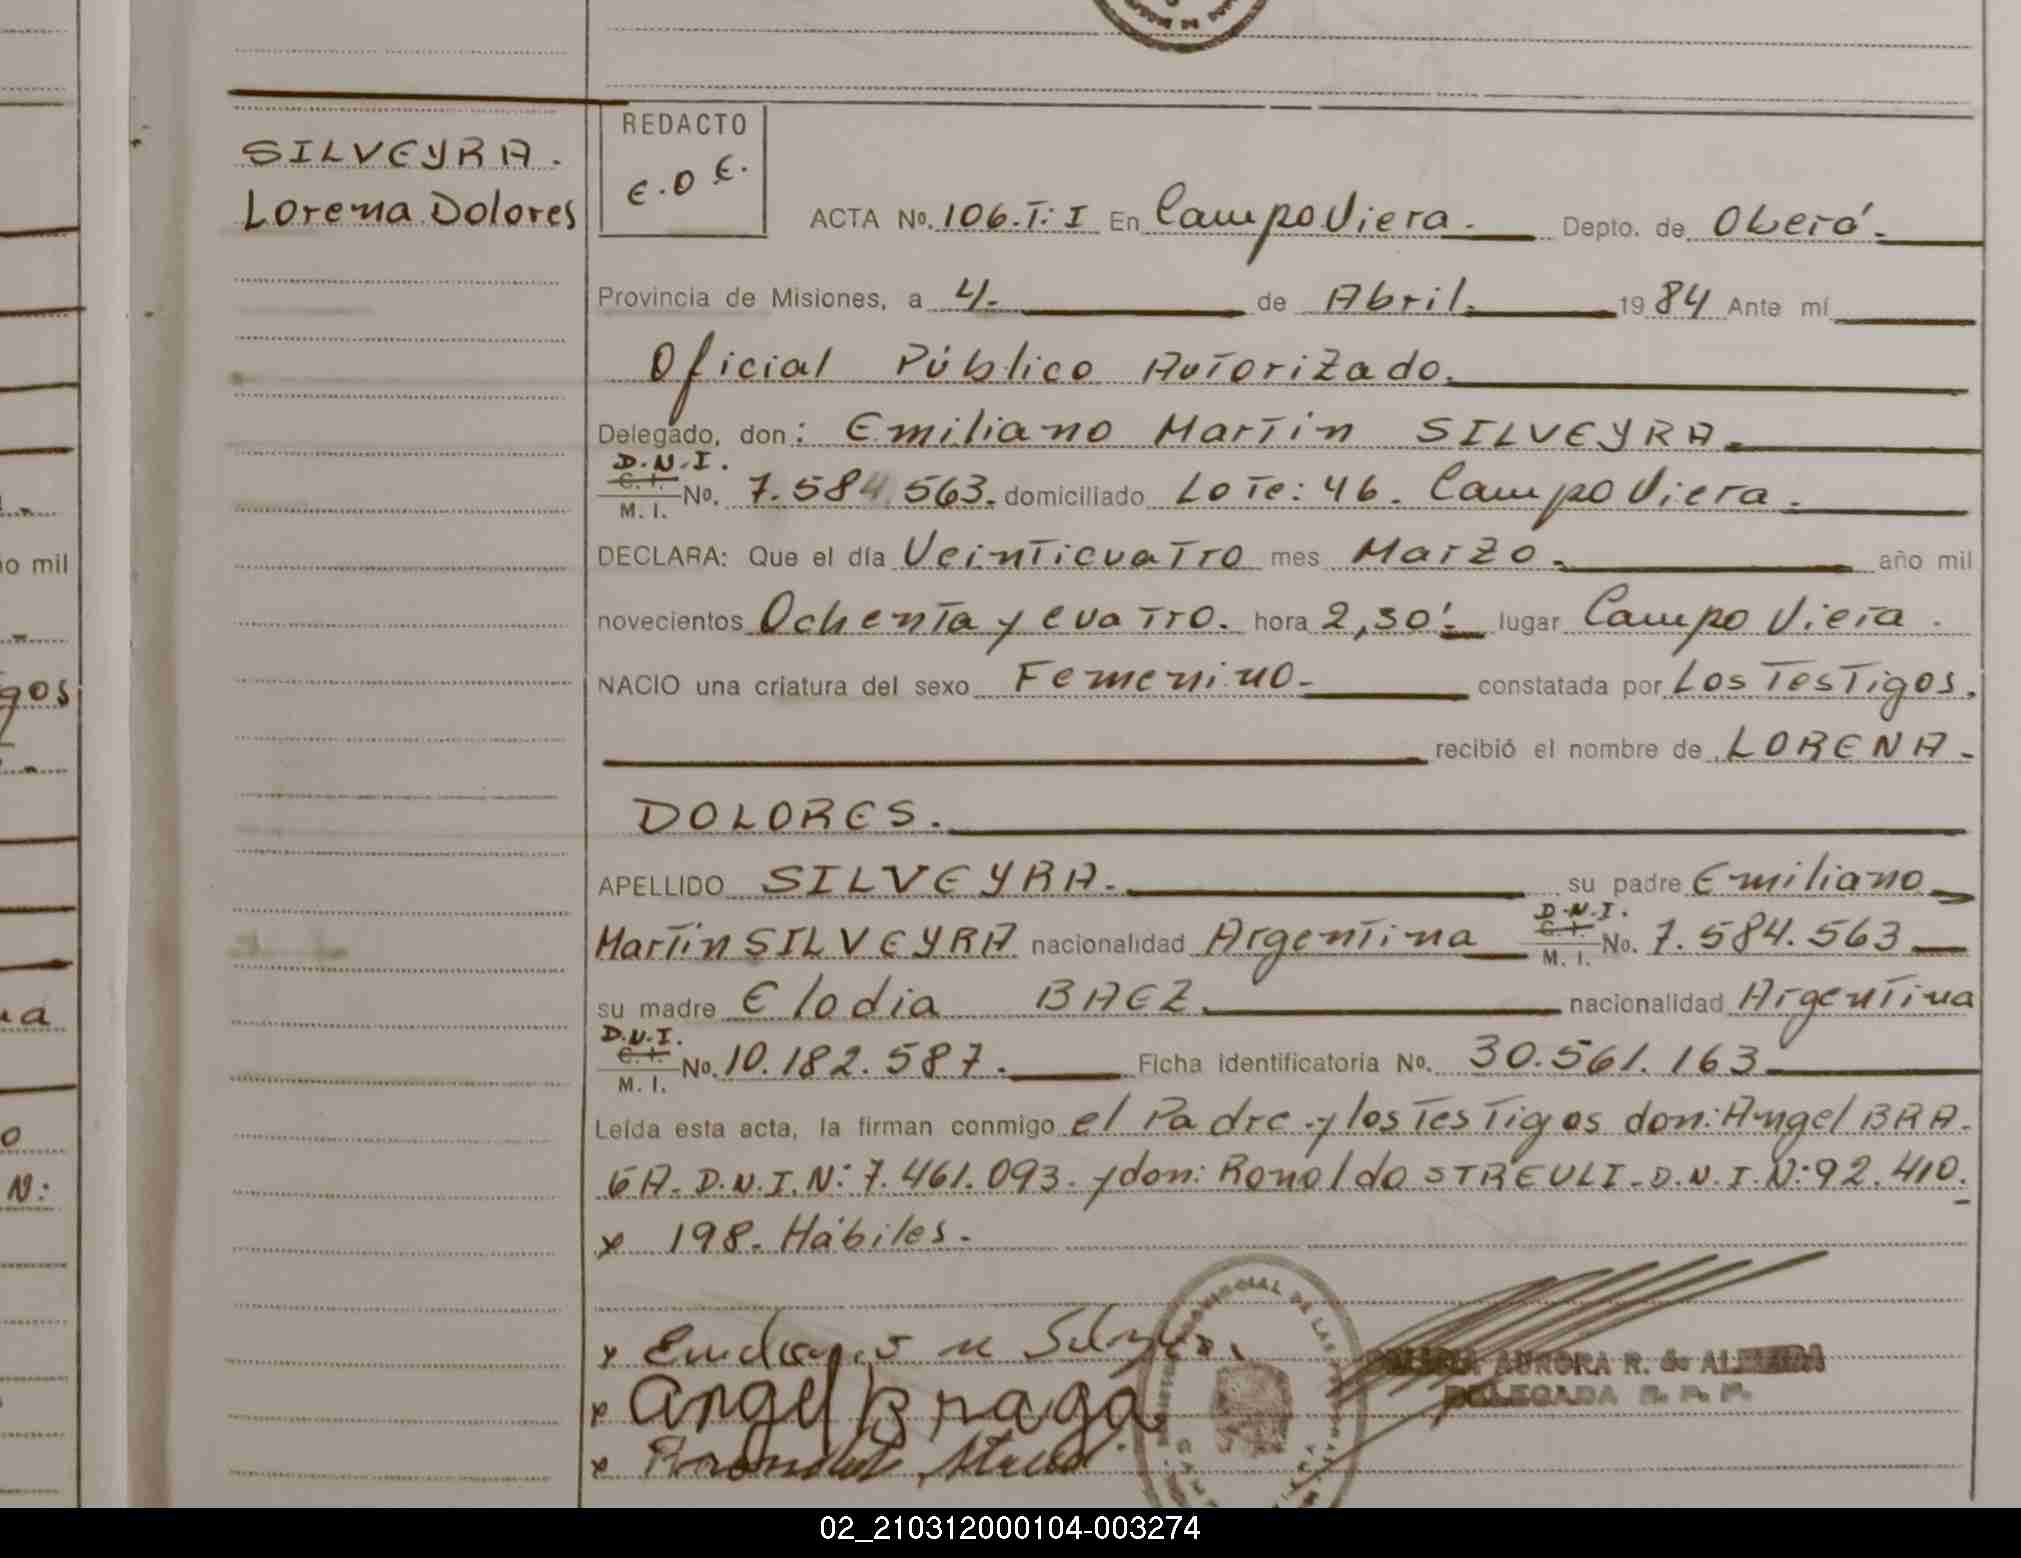 SILVEYRA.
Lorena Dolores
REDACTO
E.O E.
ACTA No. 106.T: I En Campo Viera. Depto. de Oberá.
Provincia de Misiones, a 4. de Abril. 1984 Ante mí
Oficial Público Autorizado.
Delegado, don: Emiliano Martin SILVEYRA.
D.N.I.
C. I.
M. I. No. 7.584.563. domiciliado Lote: 46. Campo Viera.
DECLARA: Que el día Veinticuatro mes Marzo. año mil
novecientos Ochenta y cuatro. hora 2,30'. lugar Campo Viera.
NACIO una criatura del sexo Femenino. constatada por Los Testigos.
recibió el nombre de LORENA
DOLORES.
APELLIDO SILVEYRA. su padre Emiliano
D.N.I.
Martin SILVEYRA nacionalidad Argentina C. I. M. I. No. 7.584.563
su madre Elodia BAEZ nacionalidad Argentina
D.N.I.
C. I.
M. I. No. 10.182.587. Ficha identificatoria No. 30.561.163
Leída esta acta, la firman conmigo el Padre y los Testigos don: Angel BRA.
GA. D.N.I.N: 7.461.093. y don: Ronaldo STREULI. D.N.I.N: 92.410.
x 198. Hábiles.
x
x Angel Braga
x
AURORA R. de
DELEGADA R. P. P.
o mil
gos
N:
02_210312000104-003274